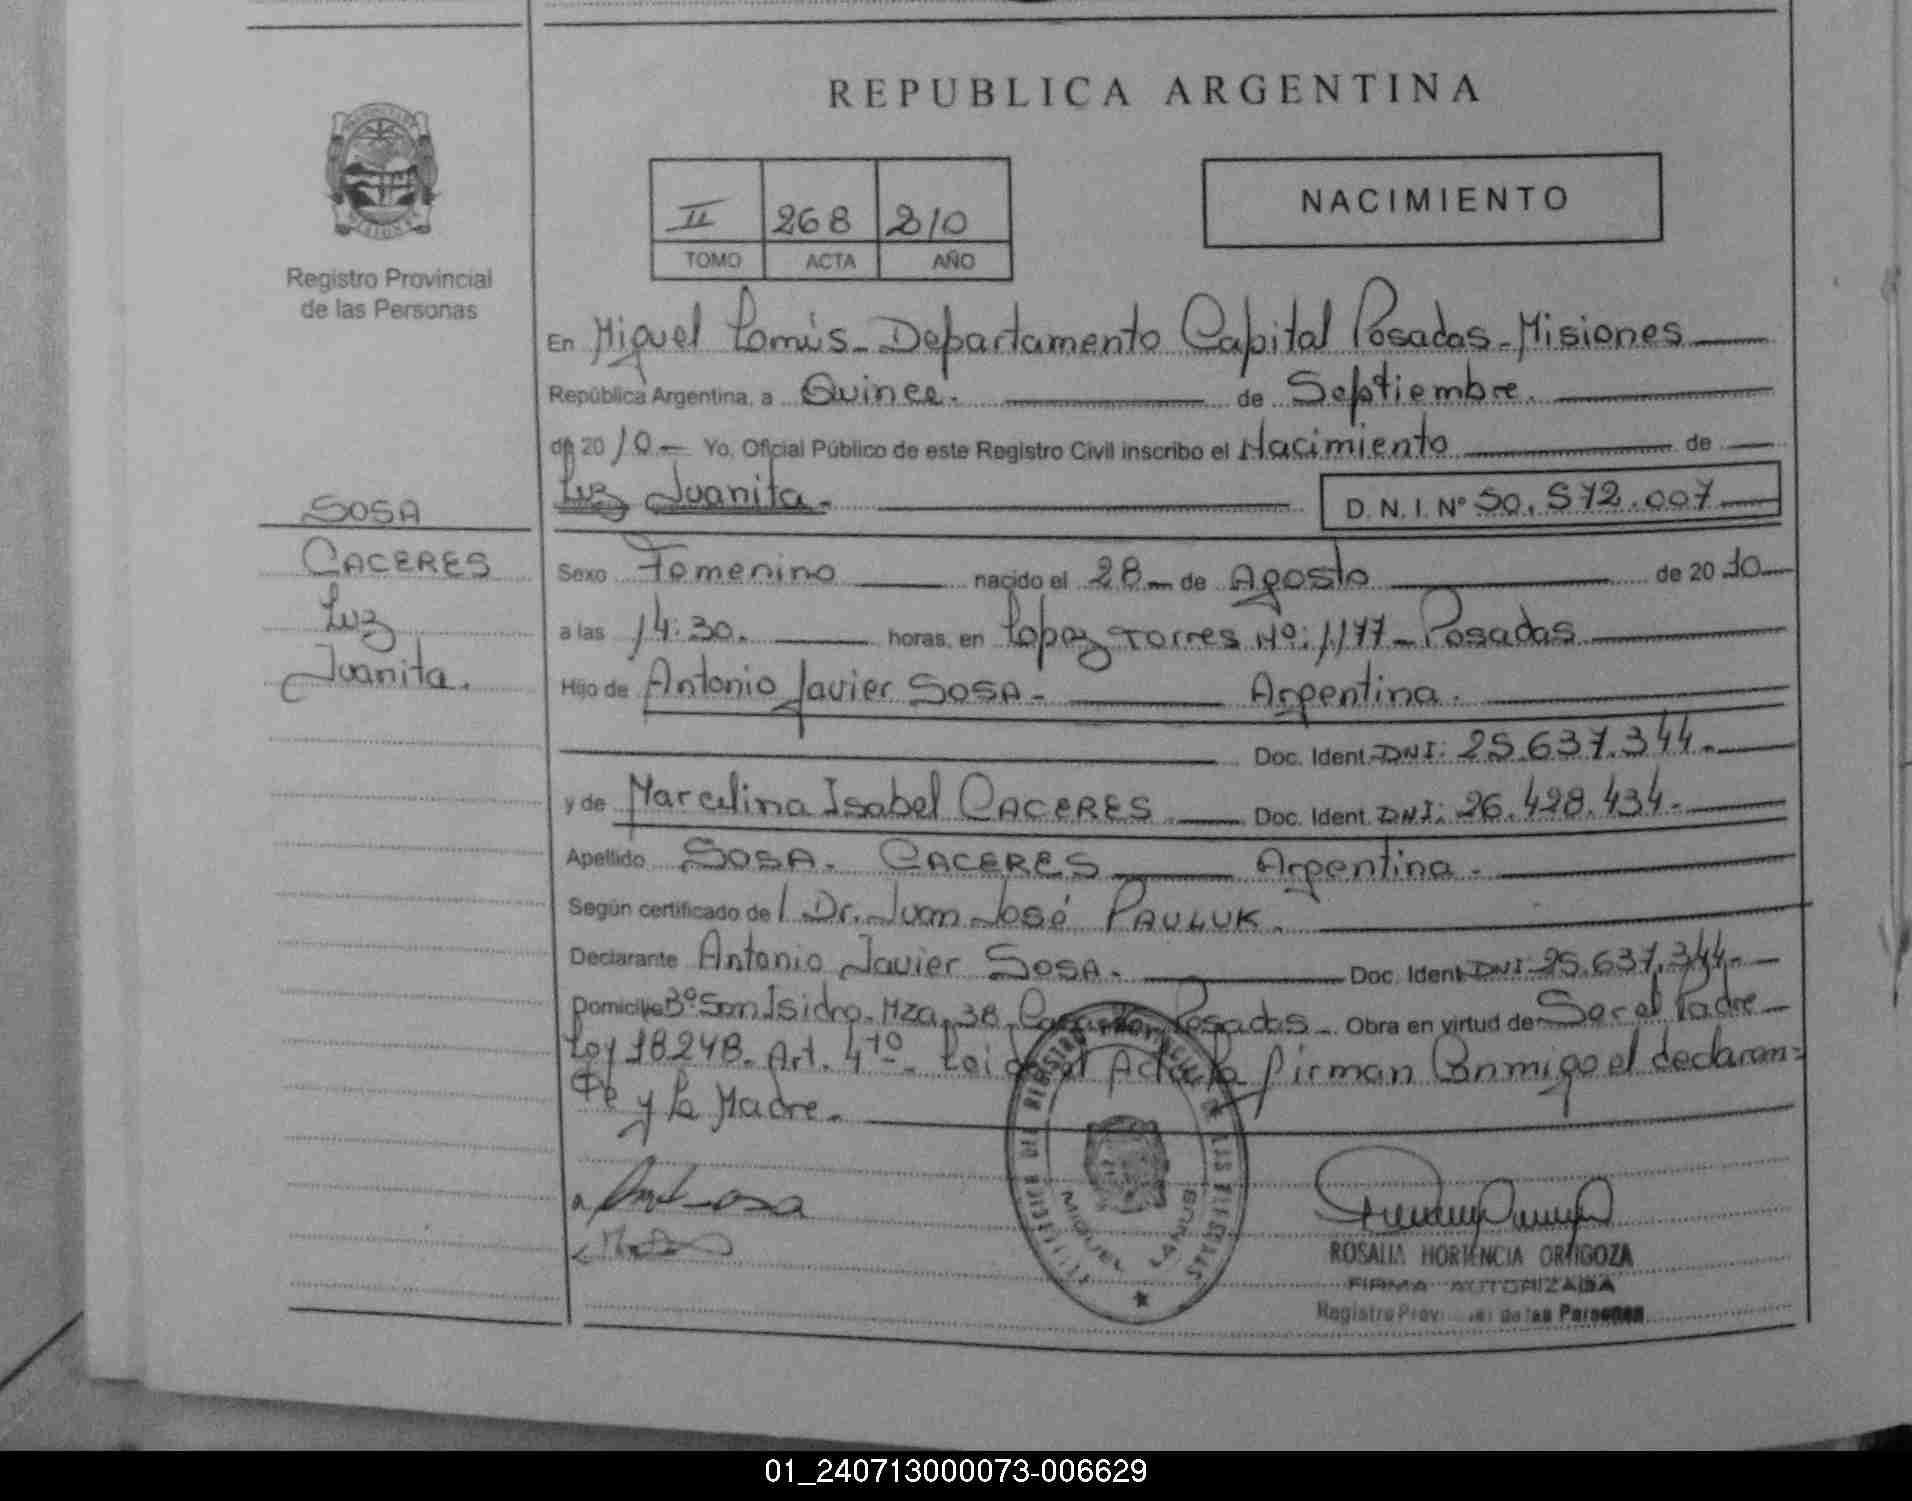 REPUBLICA ARGENTINA
NACIMIENTO
II 268 2010
TOMO ACTA AÑO
Registro Provincial
de las Personas
En Miguel Lanús - Departamento Capital Posadas - Misiones
República Argentina, a Quince. de Septiembre.
de 2010 - Yo, Oficial Público de este Registro Civil inscribo el Nacimiento de
Luz Juanita. D. N. I. Nº 50.572.007
SOSA
CACERES
Luz
Juanita.
Sexo Femenino nacido el 28 - de Agosto de 2010
a las 14:30. horas, en Lopez Torres Nº: 1177 - Posadas
Hijo de Antonio Javier SOSA - Argentina.
Doc. Ident. DNI: 25.637.344.-
y de Marcelina Isabel CACERES Doc. Ident. DNI: 26.428.434.-
Apellido SOSA - CACERES Argentina.
Según certificado del Dr. Juan José PAULUK.
Declarante Antonio Javier SOSA. Doc. Ident. DNI: 25.637.344.-
Domicilio Bº San Isidro - Mza. 38 Posadas - Obra en virtud de Ser el Padre
Ley 18248. Art. 4to - Leida el Acta la firman Conmigo el declaran=
te y la Madre.-
ROSALIA HORTENCIA ORTIGOZA
FIRMA AUTORIZADA
Registro Provincial de las Personas
01_240713000073-006629